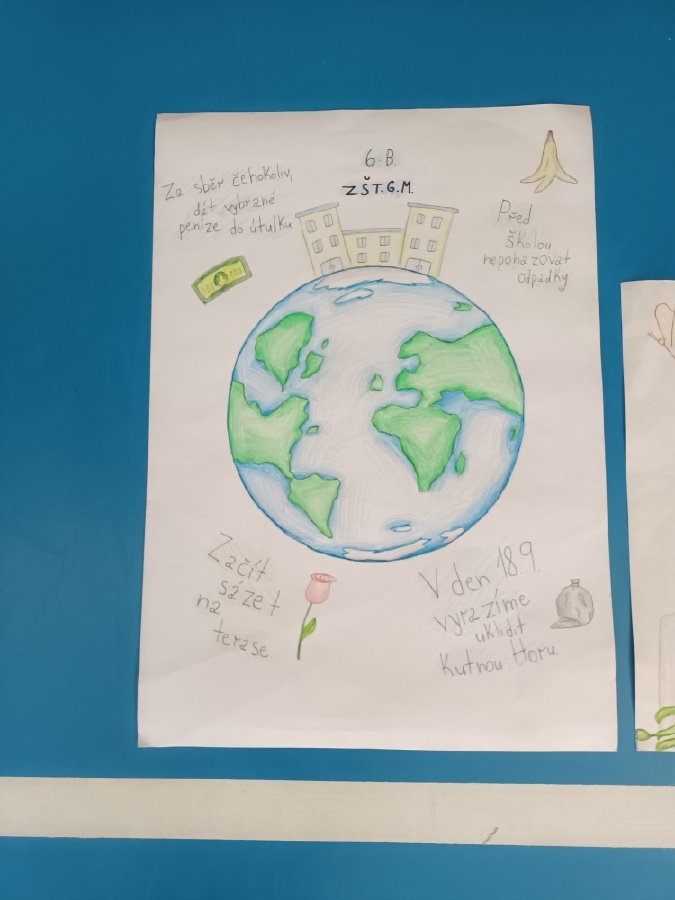 6. B.
ZŠ T.G.M.
Za sběr čehokoliv,
dát vybrané
peníze do útulku
Před
školou
nepohazovat
odpadky
Začít
sázet
na
terase.
V den 18.9.
vyrazíme
uklidit
Kutnou Horu.